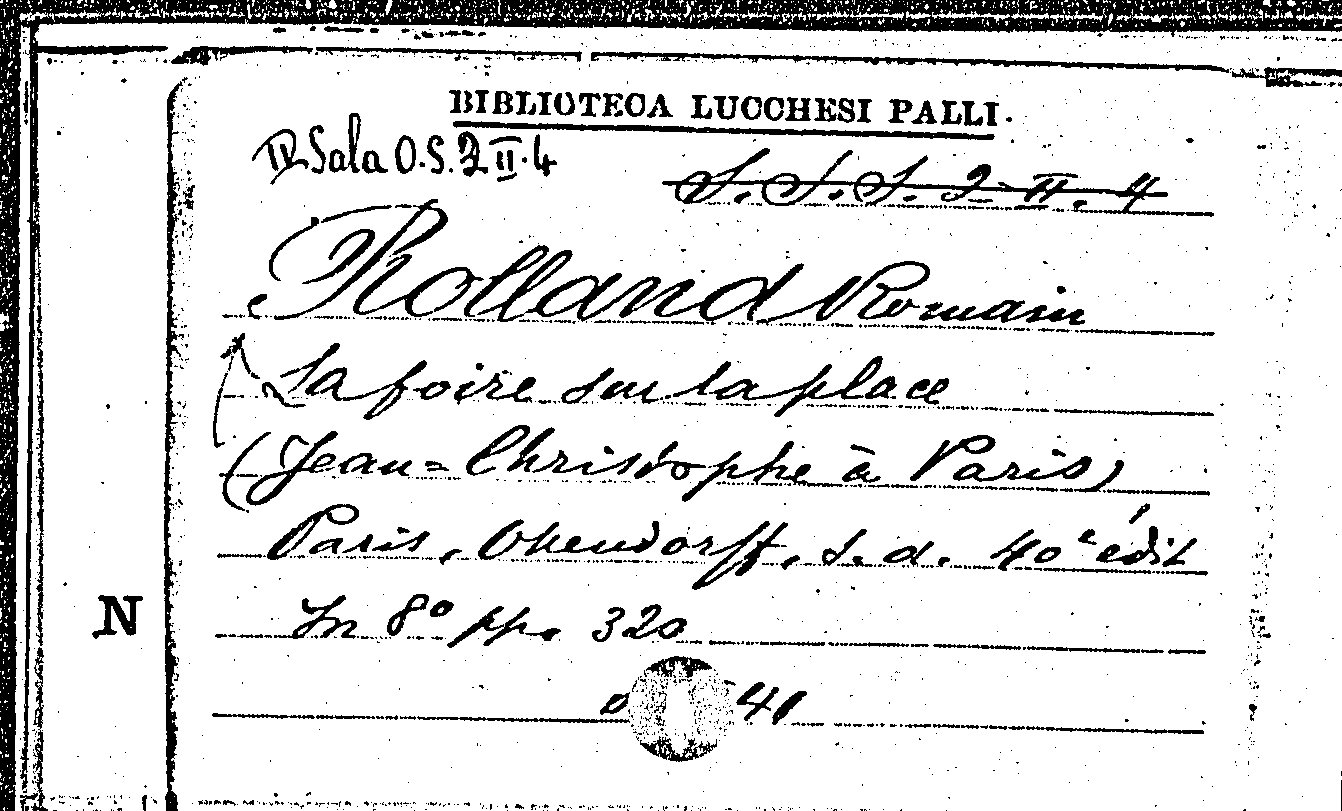 BIBLIOTECA LUCCHESI PALLI.
IV Sala O.S. 2 II. 4
S. S. S. 2 II. 4
Rolland Romain
La foire sur la place
(Jean=Christophe à Paris)
Paris, Ohendorff, s. d. 40e édit
In 8º pp. 320
N
41